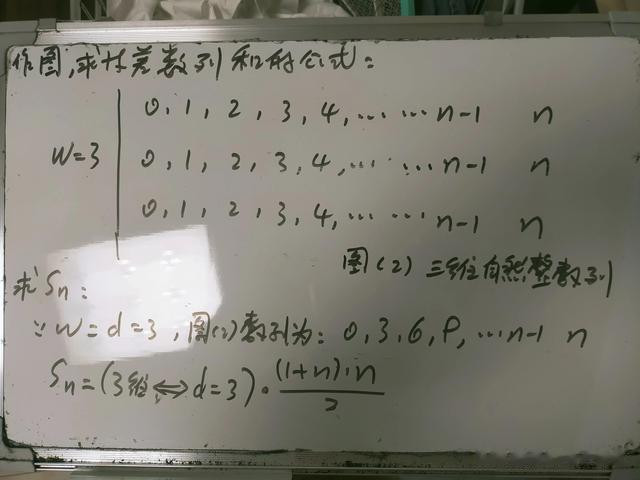 作图,求等差数列和的公式:
0, 1, 2, 3, 4, …… n-1 n
W=3 0, 1, 2, 3, 4, …… n-1 n
0, 1, 2, 3, 4, …… n-1 n
图(2) 三维自然整数列
求Sn:
∵ W=d=3, 图(2)数列为: 0, 3, 6, 9, …n-1 n
Sn=(3维⇔d=3)·(1+n)·n/2